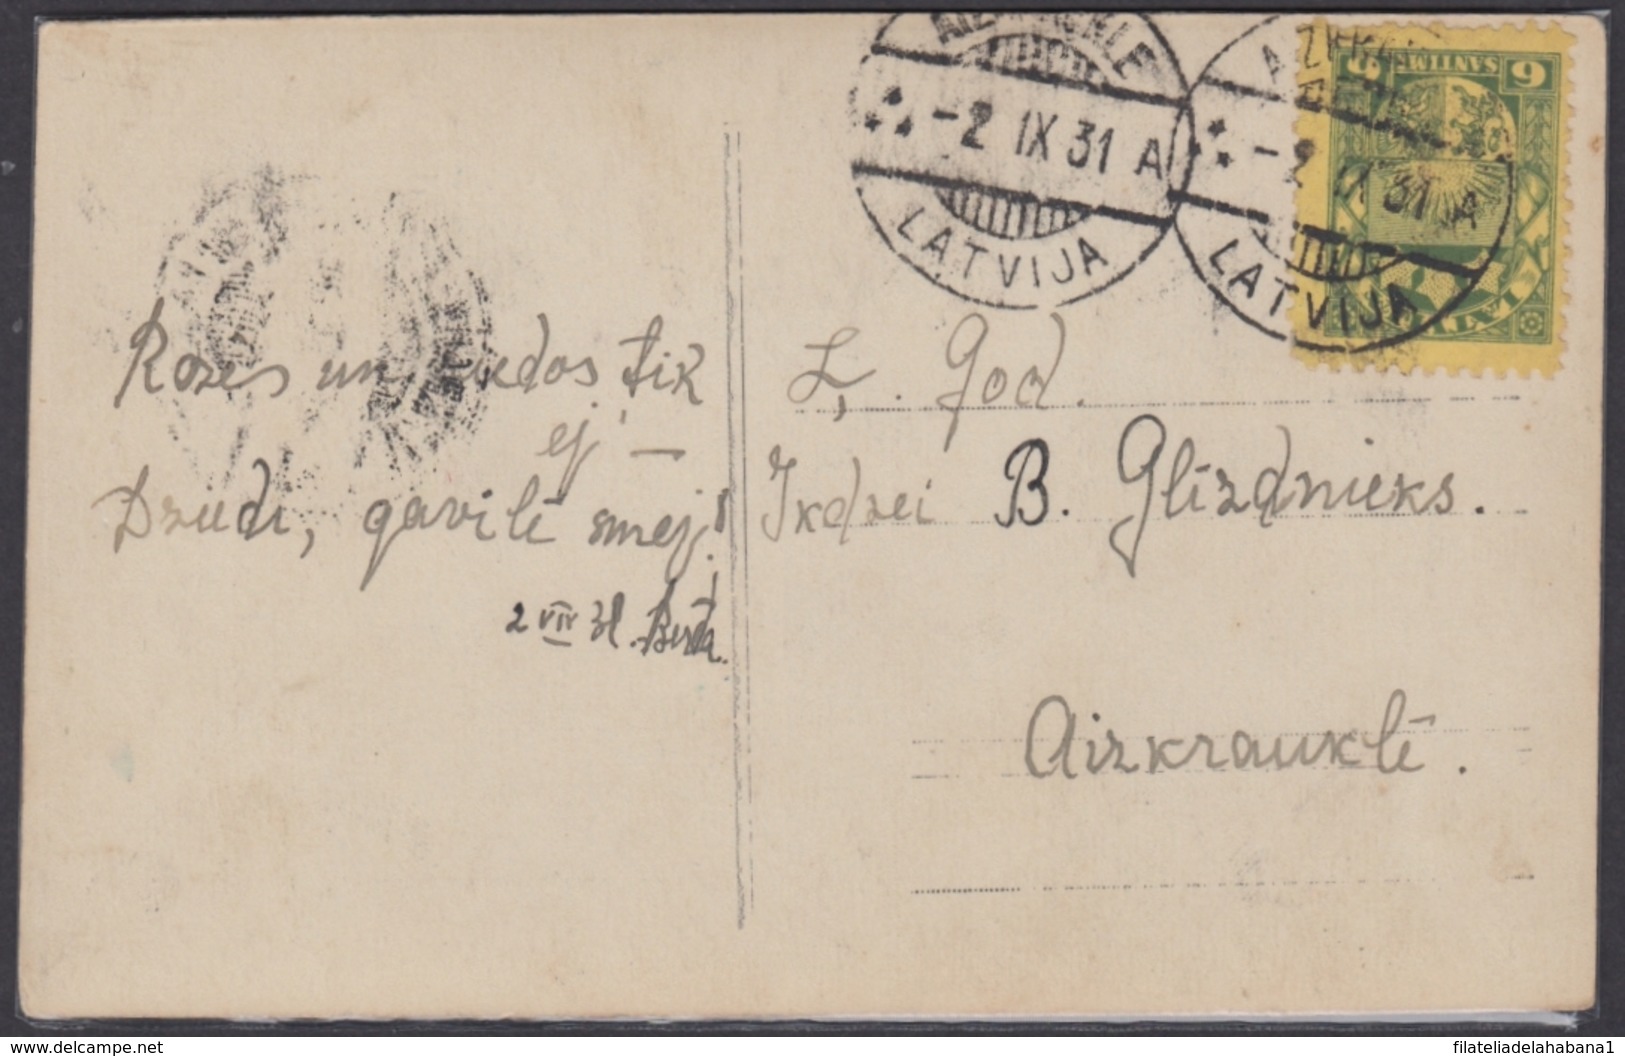 AIZKRAUKLE
-2 IX 31 A
LATVIJA
-2 IX 31 A
LATVIJA
6 SANTIMI 6
LATVIJA
Rozes un ziedos tik
ej —
Dziedi, gavilē smej!
2 VIII 31. Berta.
Ļ. God.
B. Glizdnieks.
Aizkrauklē.
filateliadelahabana1
www.delcampe.net